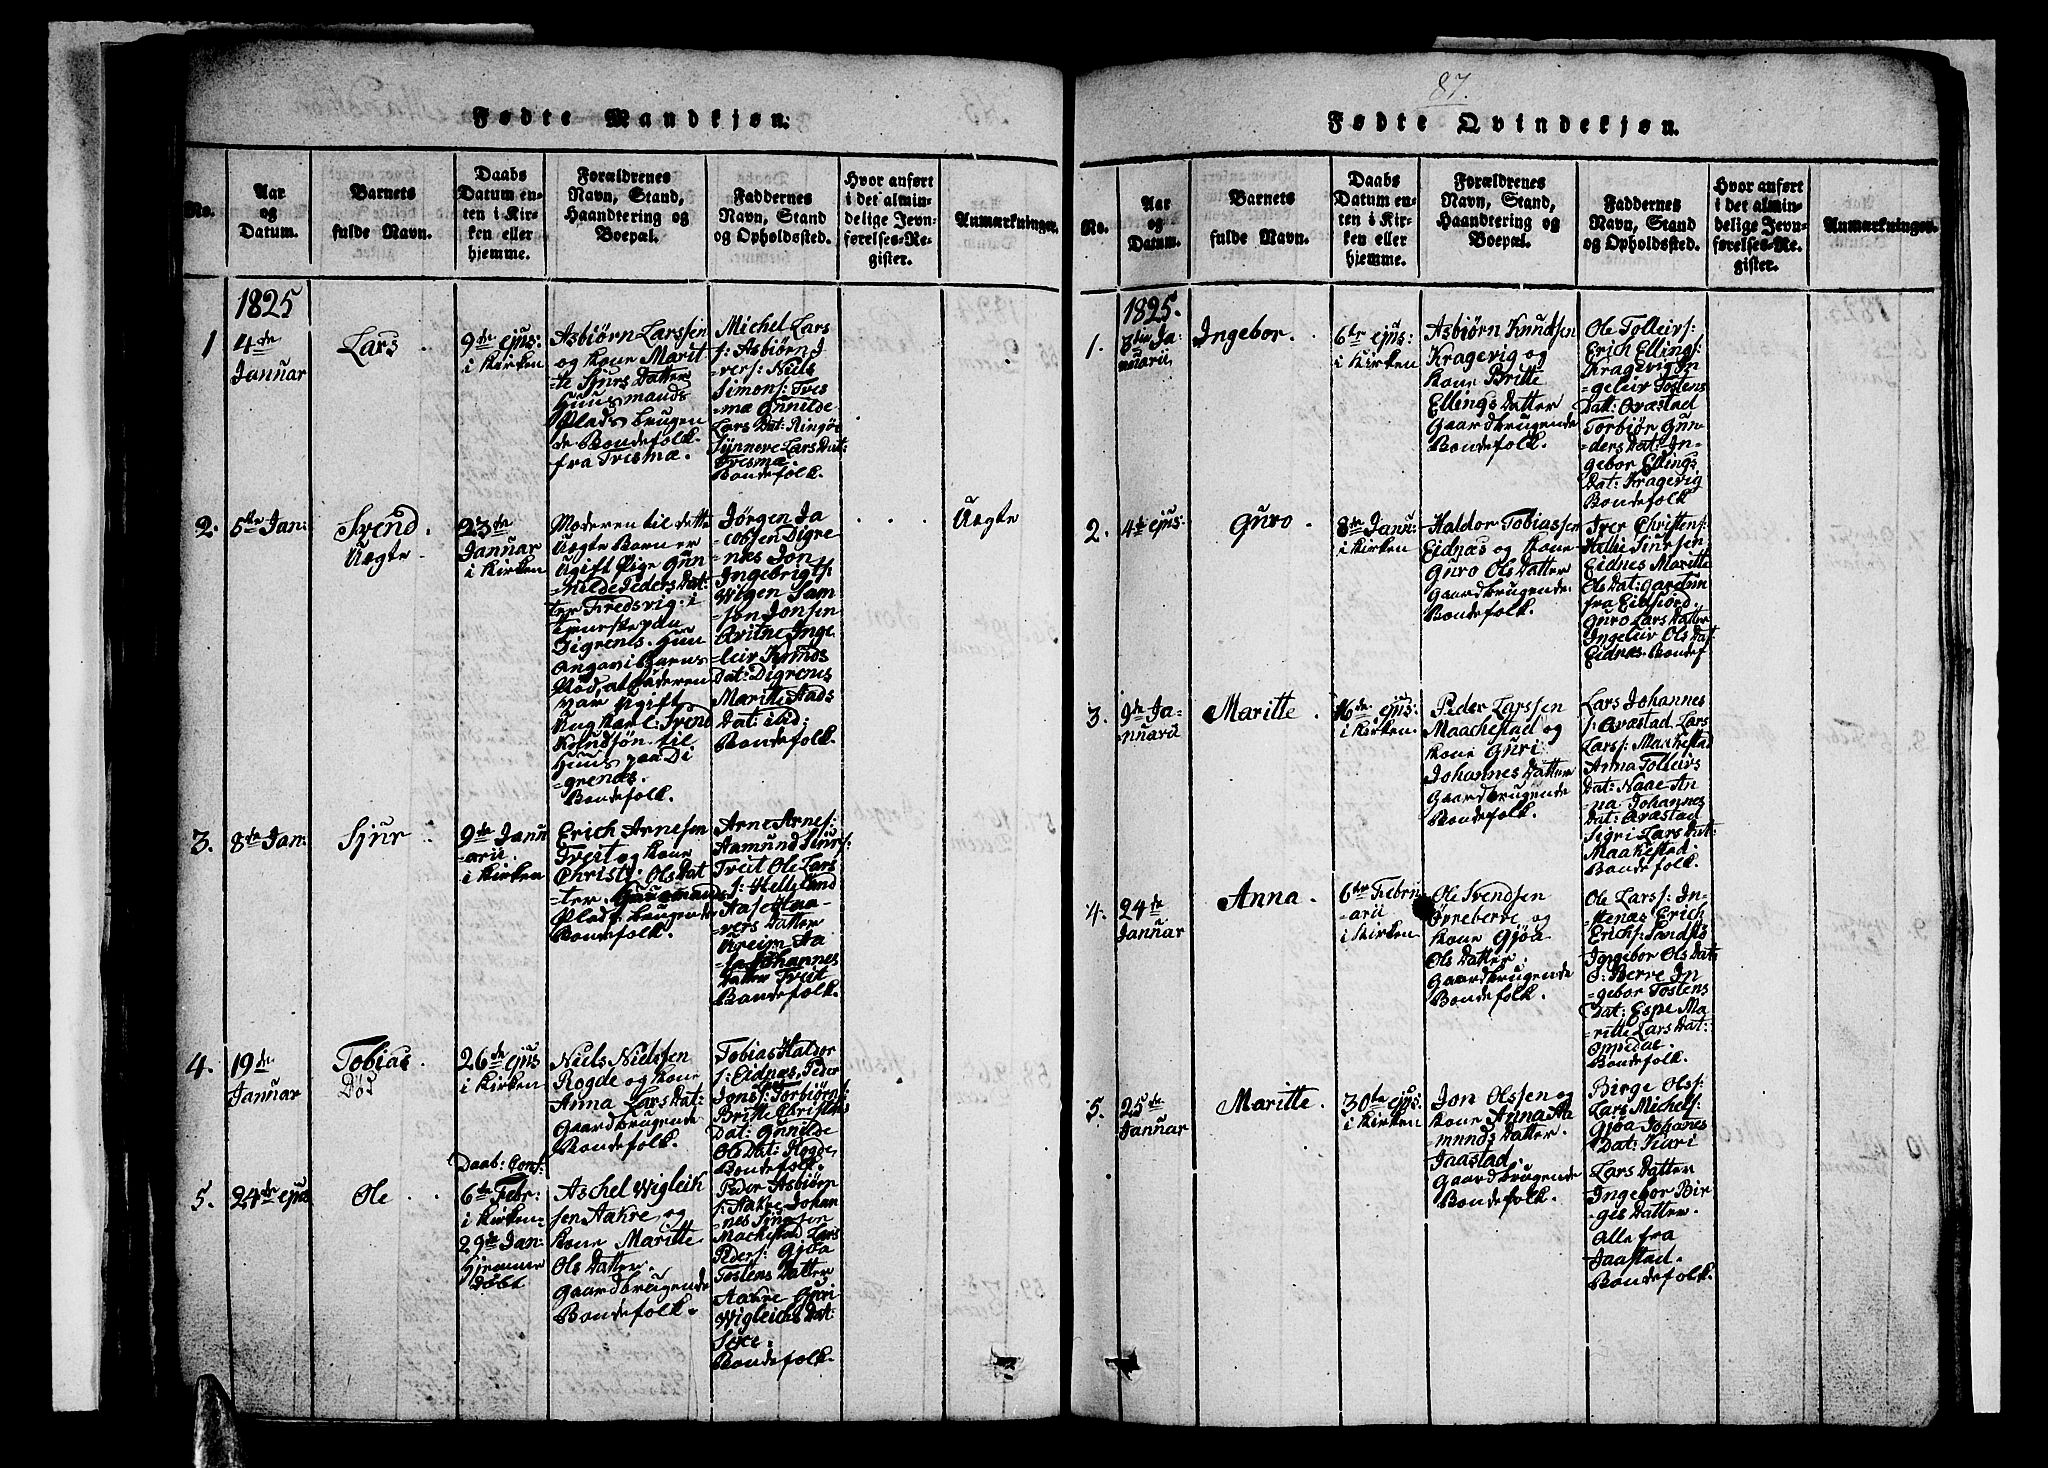 Fødte Mandkjøn.
No.
Aar
og
Datum.
Barnets
fulde Navn.
Daabs
Datum en-
ten i Kir-
ken eller
hjemme.
Forældrenes
Navn, Stand,
Haandtering og
Boepæl.
Faddernes
Navn, Stand
og Opholdssted.
Hvor anført
i det almin-
delige Jevn-
førelses-Re-
gister.
Anmærkninger.
1825
1
4de
Januar
Lars
9de ejus:
i Kirken
Asbiørn Larssen
og Kone Marit
=te Sjurs Datter
Huusmands
Plads brugen
de Bondefolk.
fra Tresmæ.
Michel Lars
s: Asbiørn I
vers: Niels
Simons: Tres
=mæ Gunilde
Lars Dat: Ringøe
Synneve Lars Dat:
Tresmæ
Bondefolk.
2.
5te Jan:
Svend.
Uegte
23de
Januar
i Kirken
Moderen til dette
Uegte Barn er
Ugift Pige Gun
=hilde Peders Dat:
ter Fredsvig: i
tjeneste paa
Digrenes. Hun
angav i Barns
Nød, at Faderen
var Ugift
Ung Karl: Svend
Knudsøn. til
Huus paa Di
=grenæs.
Bondefolk.
Jørgen Ja
cobsen Digre
=næs Jon
Ingebrigts:
Wigen Sam
=son Jonsen
Qvitne Inge
=leiv Knuds
Dat: Digrenes
Maritte Aads
Dat: ibid:
Bondefolk.
Uegte
3.
8de Jan:
Sjur
9de Janu
=arii
i Kirken
Erich Arnesen
Treit og Kone
Christi: Ols Dat
=ter. Huusmands
Plads: brugende
Bondefolk.
Arne Arnes:
Aamund Siurs:
Treit Ole Lars
s: Helleland
Aase Haa=
=vers Datter
Qreim Aa
=sa Johannes
Datter Treit
Bondefolk.
4.
19de
Januar
Tobias.
Død
26de ejus
i Kirken
Niels Nielssen
Rogde og Kone
Anna Lars Dat:
Gaardbrugende
Bondefolk.
Tobias Haldor
s: Eidnæs, Peder
Jons: Torbiørn s:
Britte Christens
Dat: Gunilde
Ols Dat: Rogde
Bondefolk.
5.
24de ejus
Ole
Daab: Conf:
6te Febr:
i Kirken.
29de Jan:
hjemme
døbt
Aschel Wigleik
sen Aakre, og
Kone Maritte
Ols Datter.
Gaardbrugende
Bondefolk.
Peder Asbiørn
s: Aakre Johan
=nes Siursen
Machestad Lars
Peders: Gjøa
Tostens Datter
Aakre Guri
Wigleichs Dat:
Sexe.
Bondefolk.
87.
Fødte Qvindekjøn.
No.
Aar
og
Datum.
Barnets
fulde Navn.
Daabs
Datum en-
ten i Kir-
ken eller
hjemme.
Forældrenes
Navn, Stand,
Haandtering og
Boepæl.
Faddernes
Navn, Stand
og Opholdssted.
Hvor anført
i det almin-
delige Jevn-
førelses-Re-
gister.
Anmærkninger.
1825.
1.
Ja=
nuarii
Ingebor.
6te ejus:
i Kirken
Asbiørn Knudsen
Kragevig og
Kone Britte
Ellings Datter
Gaardbrugende
Bondefolk.
Ole Tolleivs:
Erich Ellings:
Kragevig In
=geleiv Tostens
Dat: Qvæstad
Torbiør Gun=
=ders Dat: In=
gebor Ellings
Dat: Kragevig
Bondefolk
2.
4de ejus:
Guro
8de Janu:
i Kirken
Haldor Tobiassen
Eidnæs og Kone
Guro Ols Datter
Gaardbrugende
Bondefolk.
Iver Christens:
Helle Siursen
Eidnes Maritte
Ols Dat: Garthun
fra Eidfiord.
Guro Lars Datter
Ingeleiv Ols Dat:
Eidnæs. Bondef
3.
9de Ja=
=nuarii
Maritte
16de ejus:
i Kirken.
Peder Larssen
Maachestad og
Kone Guri
Johannes Datter
Gaardbrugende
Bondefolk.
Lars Johannes
s: Qvæstad Lars
Lars s: Maakestad
Anna Tolleivs
Dat: Naae An
=na Johannes
Dat: Qvæstad
Sigri Lars Dat:
Maakestad:
Bondefolk.
4.
24de
Januar
Anna.
6te Febru
=arii
i Kirken
Ole Svendsen
Øvreberre og
Kone Gjøa
Ols Datter.
Gaardbrugende
Bondefolk.
Ole Larss: In=
=tenæs Erich
Erichs: Sandstø
Ingebor Ols Dat:
Ø: Berre In
=gebor Tostens
Dat: Espe Ma
=ritte Lars Dat:
Oppedal.
Bondefolk.
5.
25de
Januar
Maritte.
30te ejus:
i Kirken
Jon Olssen og
Kone Anna Aa
munds Datter.
Jaastad.
Gaardbrugende
Bondefolk.
Birge Olss:
Lars Michels:
Gjøa Johanes
Dat: Kari
Lars Datter
Ingebor Bir
ges Datter.
Alle fra
Jaastad.
Bondefolk.